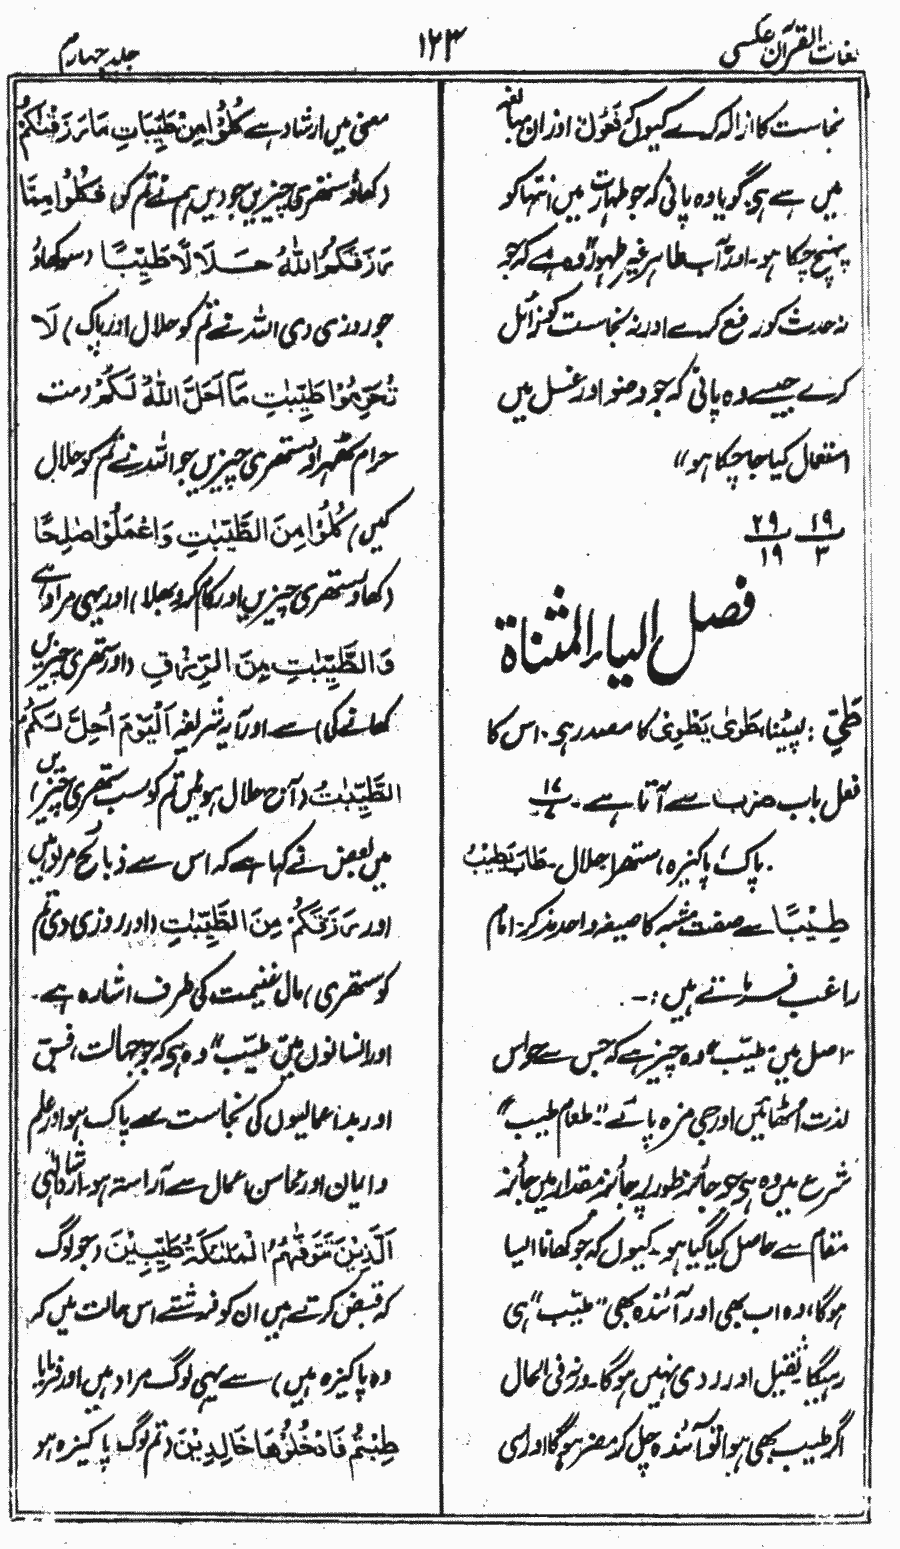 لغات القرآن عکسی
۱۲۳
جلد چہارم
نجاست کا ازالہ کرے کیوں کہ فَعُوْلٌ اوزان مبالغہ
میں سے ہی۔ گویا وہ پانی کہ جو طہارت میں انتہا کو
پہنچ چکا ہو۔ اور آب طاہر غیر طہور وہ ہے کہ جو
نہ حدث کو رفع کرے اور نہ نجاست کو زائل
کرے جیسے وہ پانی کہ جو وضو اور غسل میں
استعمال کیا جا چکا ہو"
۱۹ ۲۹
۳ ۱۹
فصل الیاء المثناۃ
طَیِّ : لپیٹنا، طَوٰی یَطْوِیْ کا مصدر ہی۔ اس کا
فعل باب ضرب سے آتا ہے۔ ۱۷
پاک، پاکیزہ، ستھرا حلال۔ طَابَ یَطِیْبُ
طَیِّبًا سے صفت مشبہ کا صیغہ واحد مذکر۔ امام
راغب فرماتے ہیں :۔
"اصل میں "طیّب" وہ چیز ہے کہ جس سے حواس
لذت اٹھائیں اور جی مزہ پائے"۔ طعام طیب"
شرع میں وہ ہی جو جائز طور پر جائز مقدار میں جائز
مقام سے حاصل کیا گیا ہو۔ کیوں کہ جو کھانا ایسا
ہوگا، وہ اب بھی اور آئندہ بھی "طیّب" ہی
رہیگا ثقیل اور ردی نہیں ہوگا۔ ورنہ فی الحال
اگر طیب بھی ہوا تو آئندہ چل کر مضر ہوگا اور اسی
معنی میں ارشاد ہے كُلُوْا مِنْ طَيِّبَاتِ مَا رَزَقْنٰكُمْ
(کھاؤ ستھری چیزیں جو دیں ہم نے تم کو) فَكُلُوْا مِمَّا
رَزَقَكُمُ اللّٰهُ حَلَالًا طَيِّبًا (سو کھاؤ
جو روزی دی اللہ نے تم کو حلال اور پاک) لَا
تُحَرِّمُوْا طَيِّبٰتِ مَا اَحَلَّ اللّٰهُ لَكُمْ (مت
حرام ٹھہراؤ ستھری چیزیں جو اللہ نے تم کو حلال
کیں) كُلُوْا مِنَ الطَّيِّبٰتِ وَاعْمَلُوْا صٰلِحًا
(کھاؤ ستھری چیزیں اور کام کرو بھلا) اور یہی مراد ہے
وَالطَّيِّبٰتِ مِنَ الرِّزْقِ (اور ستھری چیزیں
کھانے کی) سے۔ اور آیہ شریفہ اَلْيَوْمَ اُحِلَّ لَكُمُ
الطَّيِّبٰتُ (آج حلال ہوئیں تم کو سب ستھری چیزیں)
میں بعض نے کہا ہے کہ اس سے ذبائح مراد ہیں
اور رَزَقَكُمْ مِنَ الطَّيِّبٰتِ (اور روزی دی تم
کو ستھری) مال غنیمت، کی طرف اشارہ ہے۔
اور انسانوں میں "طیّب" وہ ہی کہ جو جہالت، فسق
اور بد اعمالیوں کی نجاست سے پاک ہو اور علم
و ایمان اور محاسن اعمال سے آراستہ ہو۔ ارشاد الٰہی
اَلَّذِيْنَ تَتَوَفّٰهُمُ الْمَلٰئِكَةُ طَيِّبِيْنَ (جو لوگ
کہ قبض کرتے ہیں ان کو فرشتے اس حالت میں کہ
وہ پاکیزہ ہیں) سے یہی لوگ مراد ہیں اور فرمایا
طِبْتُمْ فَادْخُلُوْهَا خَالِدِيْنَ (تم لوگ پاکیزہ ہو